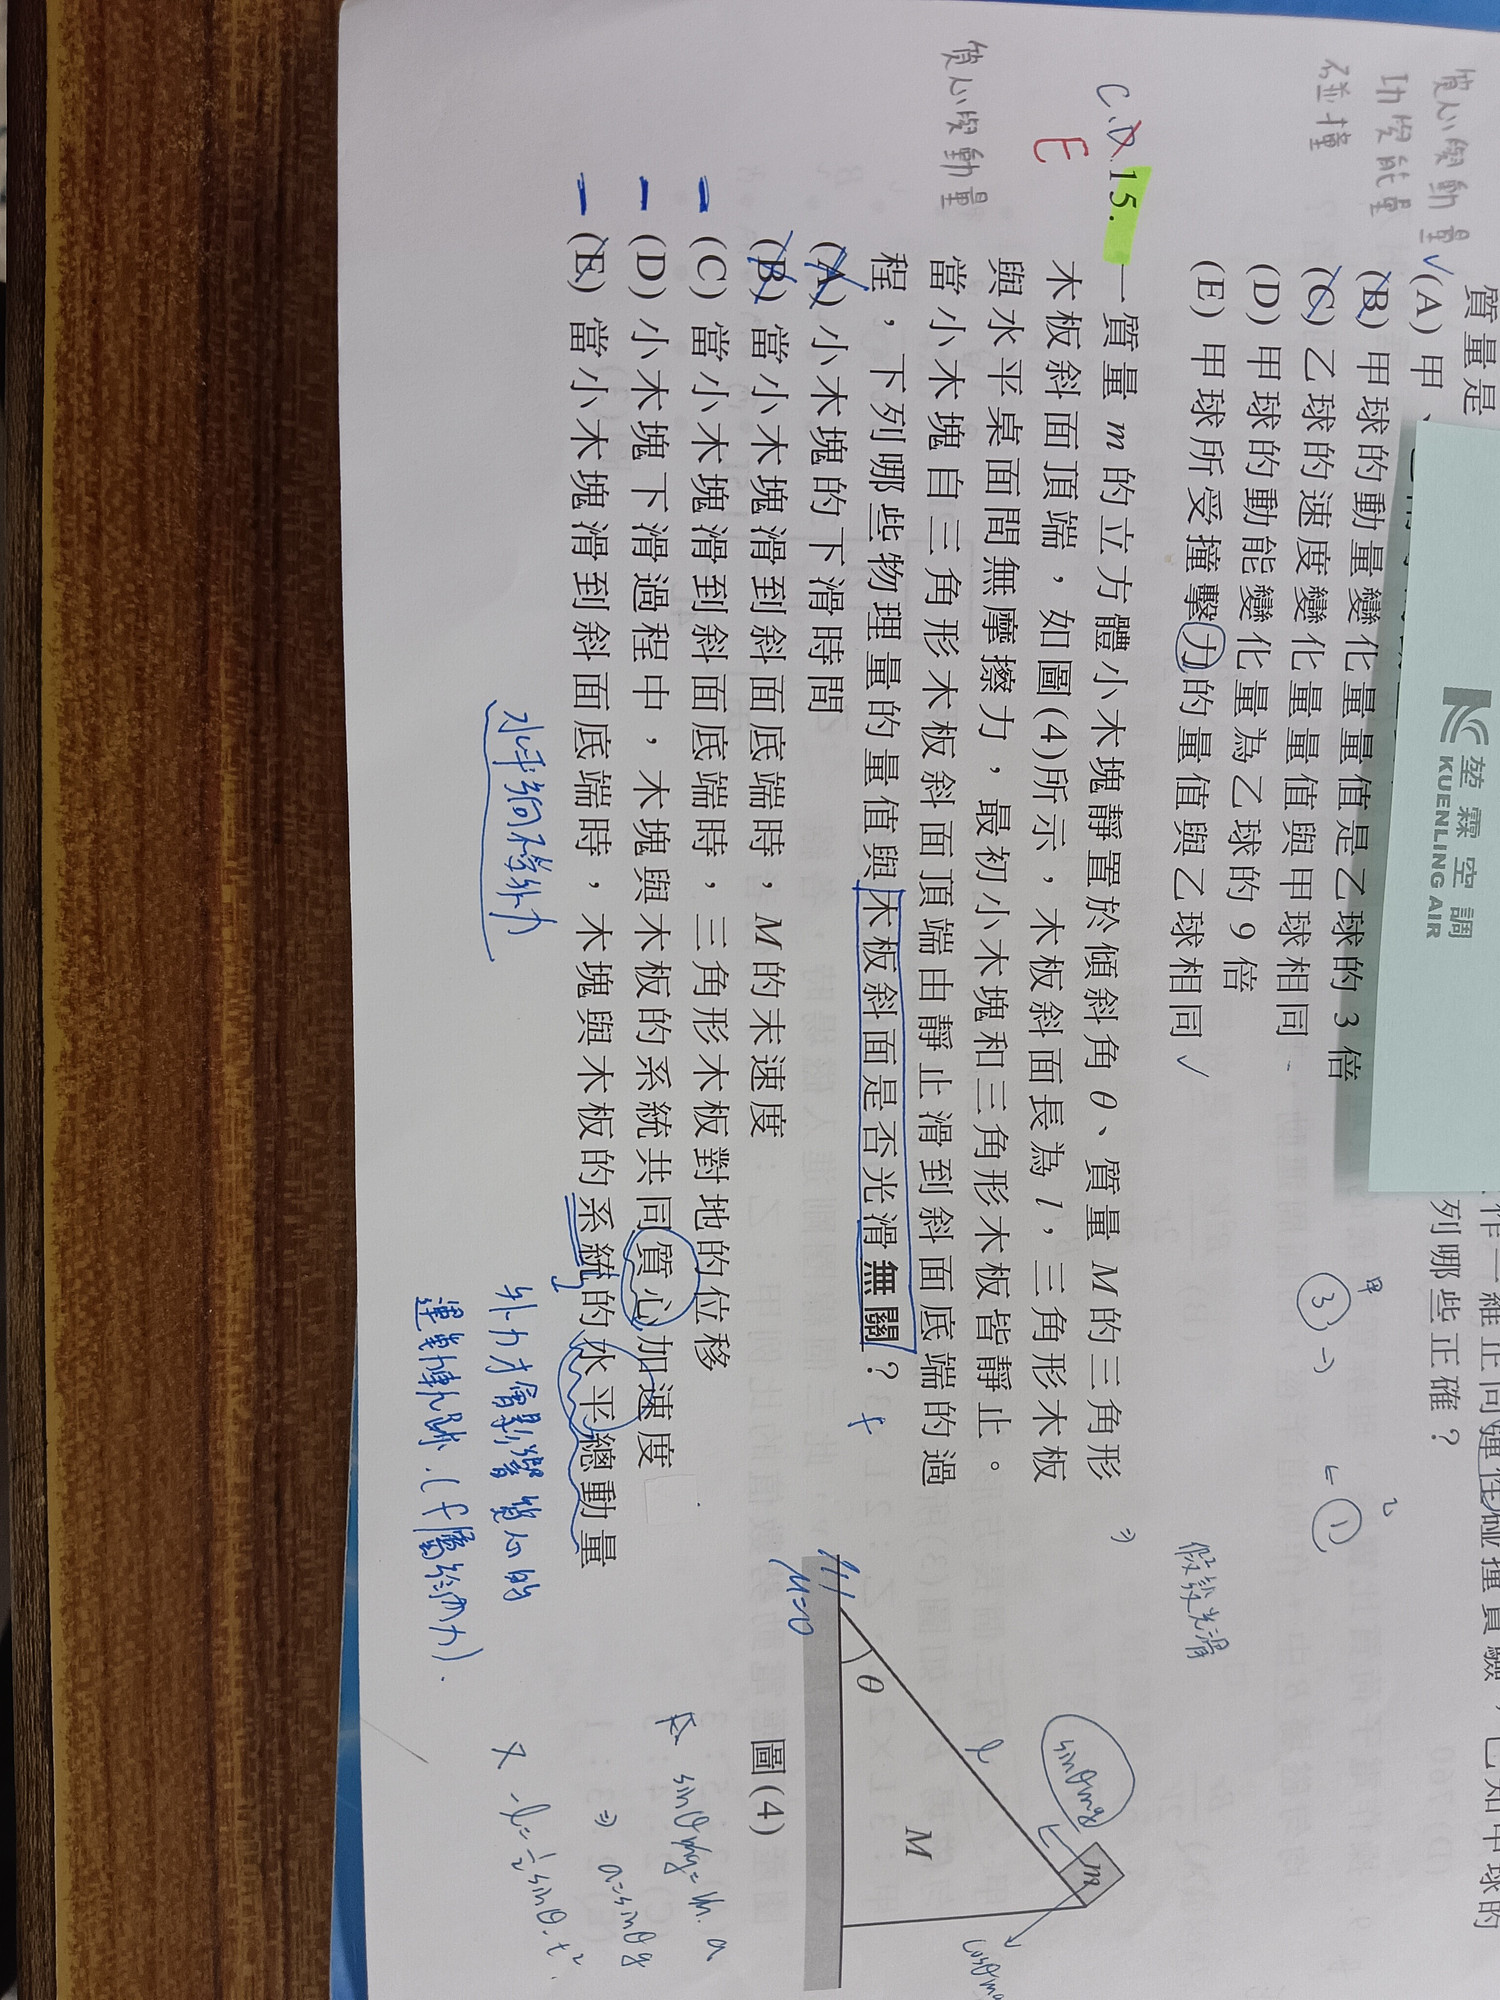 質心與動量
功與能量
碰撞
質量是
作一維正向彈性碰撞實驗，已知甲球的
列哪些正確？
✓(A) 甲、
(B) 甲球的動量變化量量值是乙球的 3 倍
(C) 乙球的速度變化量量值與甲球相同
(D) 甲球的動能變化量為乙球的 9 倍
(E) 甲球所受撞擊力的量值與乙球相同 ✓
堃霖空調
KUENLING AIR
甲
乙
③→
←①
C.D
E
15.
一質量 m 的立方體小木塊靜置於傾斜角 θ、質量 M 的三角形
木板斜面頂端，如圖(4)所示，木板斜面長為 l，三角形木板
與水平桌面間無摩擦力，最初小木塊和三角形木板皆靜止。
當小木塊自三角形木板斜面頂端由靜止滑到斜面底端的過
程，下列哪些物理量的量值與木板斜面是否光滑無關？ f
質心與動量
(A) 小木塊的下滑時間
(B) 當小木塊滑到斜面底端時，M 的末速度
(C) 當小木塊滑到斜面底端時，三角形木板對地的位移
(D) 小木塊下滑過程中，木塊與木板的系統共同質心加速度
(E) 當小木塊滑到斜面底端時，木塊與木板的系統的水平總動量
水平向不受外力
外力才會影響質心的
運動軌跡.(f屬於內力).
假設光滑
sinθmg
m
l
M
θ
μ=0
圖(4)
sinθmg=m.a
⇒ a=sinθg
-l=½sinθ.t².